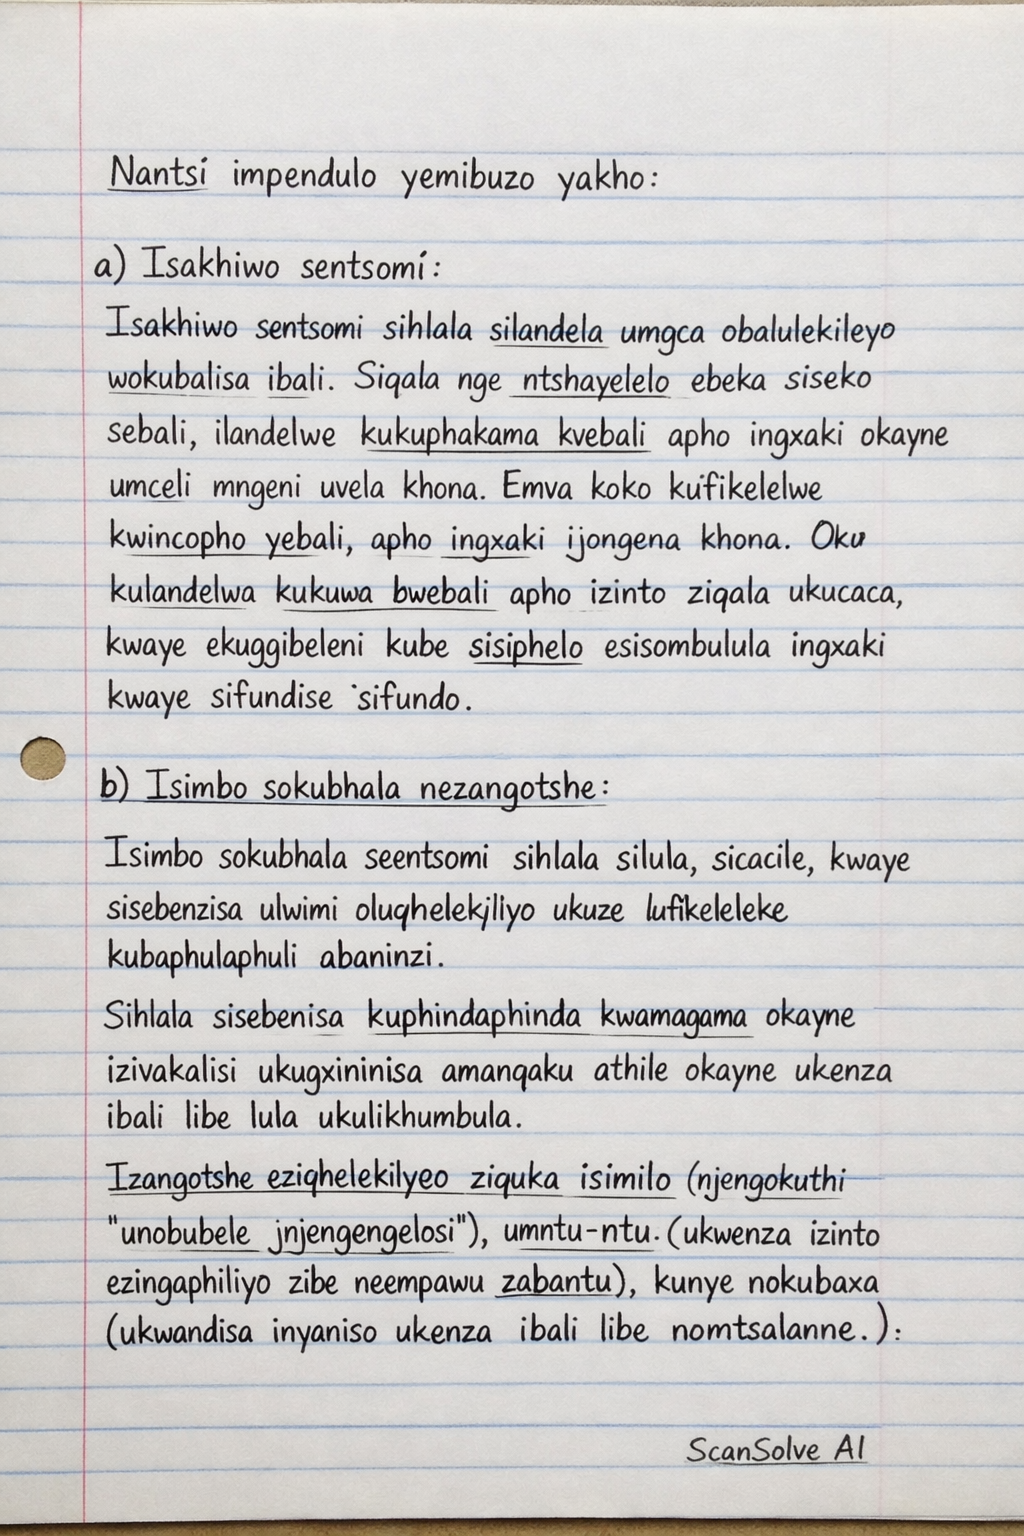 Nantsí impendulo yemibuzo yakho:
a) Isakhiwo sentsomí:
Isakhiwo sentsomi sihlala silandela umgca obalulekileyo
wokubalisa ibali. Siqala nge ntshayelelo ebeka siseko
sebali, ilandelwe kukuphakama kvebali apho ingxaki okayne
umceli mngeni uvela khona. Emva koko kufikelelwe
kwincopho yebali, apho ingxaki ijongena khona. Oku
kulandelwa kukuwa bwebali apho izinto ziqala ukucaca,
kwaye ekuggibeleni kube sisiphelo esisombulula ingxaki
kwaye sifundise sifundo.
b) Isimbo sokubhala nezangotshe:
Isimbo sokubhala seentsomi sihlala silula, sicacile, kwaye
sisebenzisa ulwimi oluqhelekjliyo ukuze lufikeleleke
kubaphulaphuli abaninzi.
Sihlala sisebenisa kuphindaphinda kwamagama okayne
izivakalisi ukugxininisa amanqaku athile okayne ukenza
ibali libe lula ukulikhumbula.
Izangotshe eziqhelekilyeo ziquka isimilo (njengokuthi
"unobubele jnjengengelosi"), umntu-ntu. (ukwenza izinto
ezingaphiliyo zibe neempawu zabantu), kunye nokubaxa
(ukwandisa inyaniso ukenza ibali libe nomtsalanne.):
ScanSolve AI